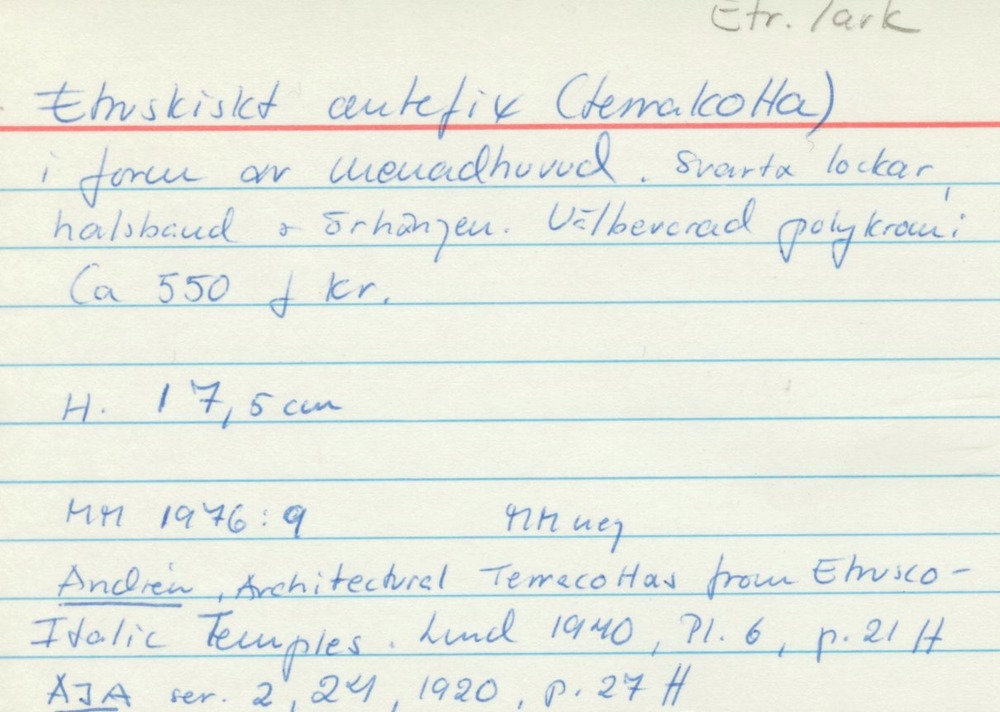 Etr. / ark
Etruskiskt antefix (terrakotta)
i form av menadhuvud. Svarta lockar,
halsband & örhängen. Välbevarad polykromi
Ca 550 f Kr.
H. 17,5 cm
MM 1976:9 MM neg
Andrén, Architectural Terracottas from Etrusco-
Italic Temples. Lund 1940, Pl. 6, p. 21 ff
AJA ser. 2, 24, 1920, p. 27 ff